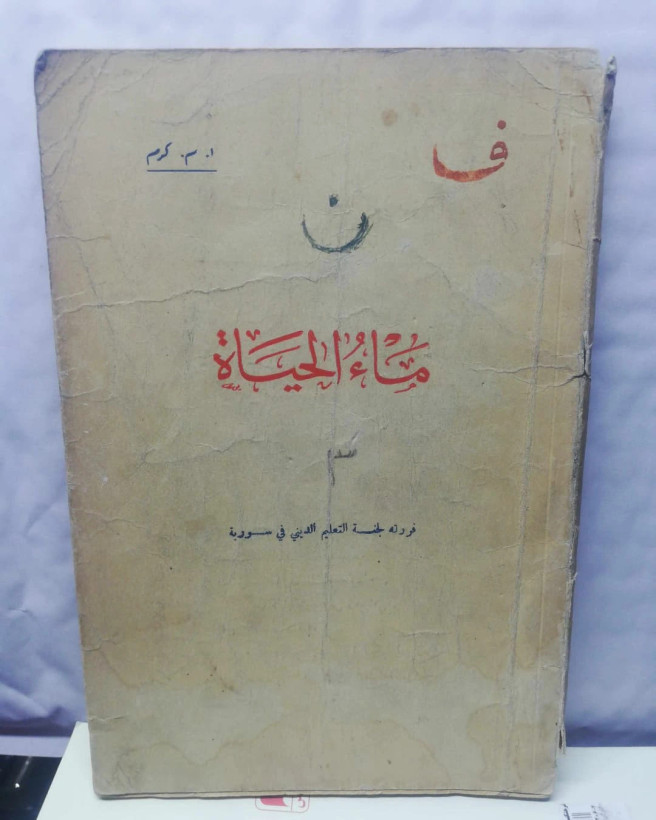 ف
ا. م. كرم
ن
مَاءُ الحَيَاة
٣
قررته لجنة التعليم الديني في سورية